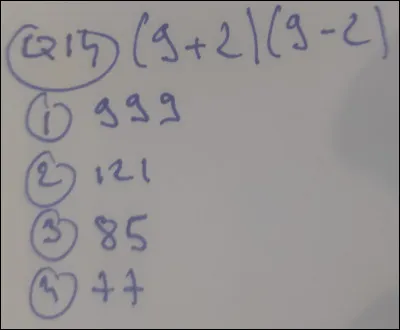 Q14 (9+2)(9-2)
① 999
② 121
③ 85
④ 77